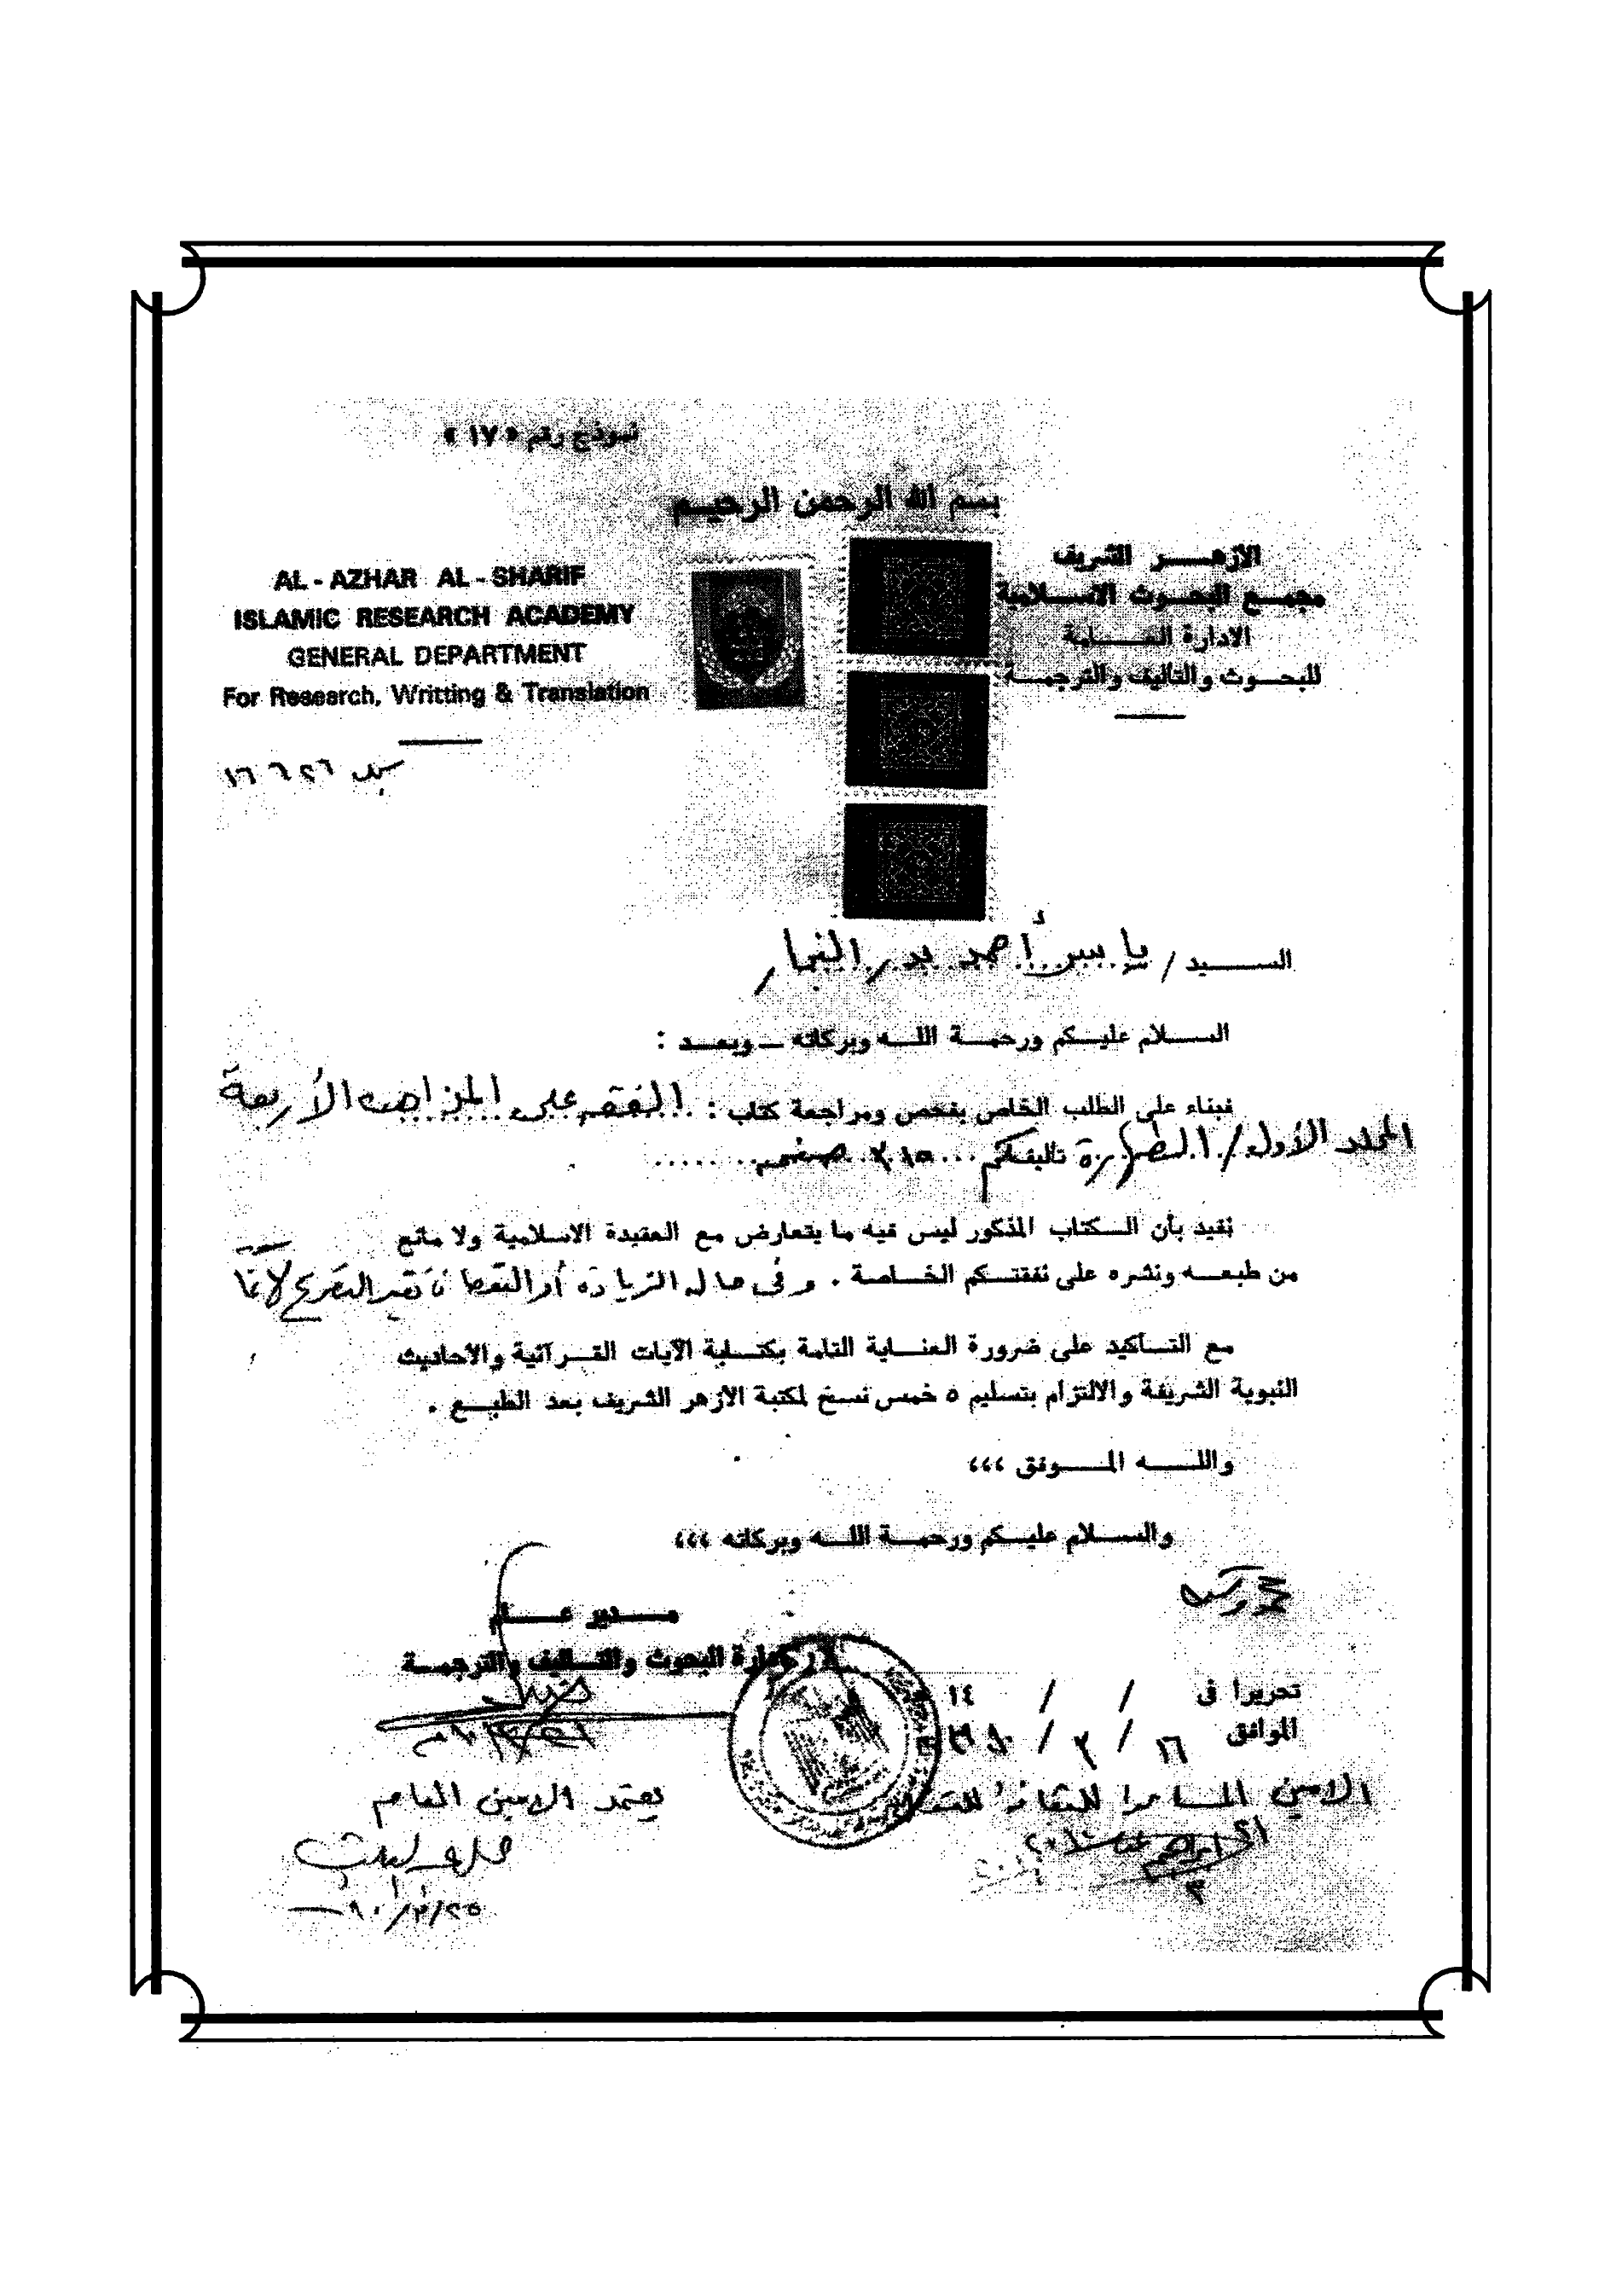 نموذج رقم « ١٧ »
بسم الله الرحمن الرحيم
الازهـــر الشريف
مجمـع البحـوث الاسـلامية
الادارة العـــامة
للبحـوث والتأليف والترجمـة
AL - AZHAR AL - SHARIF
ISLAMIC RESEARCH ACADEMY
GENERAL DEPARTMENT
For Research, Writting & Translation
الســـيد / ياسر أحمد بدر النجار
الســلام عليــكم ورحمــة اللــه وبركاته ــ وبعــد :
فبناء على الطلب الخاص بفحص ومراجعة كتاب : الفقه على المذاهب الأربعة
المجلد الأول / الطهارة تأليفكم صفحه
نفيد بأن الــكتاب المذكور ليس فيه ما يتعارض مع العقيدة الاسلامية ولا مانع
من طبعــه ونشره على نفقتــكم الخــاصة . وفى حالة الزيادة أو النقصان يعتبر التصريح لاغيا
مع التــأكيد على ضرورة العنــاية التامة بكتــابة الآيات القــرآنية والأحاديث
النبوية الشريفة والالتزام بتسليم ٥ خمس نسخ لمكتبة الأزهر الشريف بعد الطبــع .
واللـــه المـــوفق ،،،
والســلام عليــكم ورحمــة اللــه وبركاته ،،،
مـــدير عـــام
ادارة البحوث والتــأليف والترجمــة
تحريرا فى / / ١٤
الموافق ١٦ / ٢ /
يعتمد الأمين العام